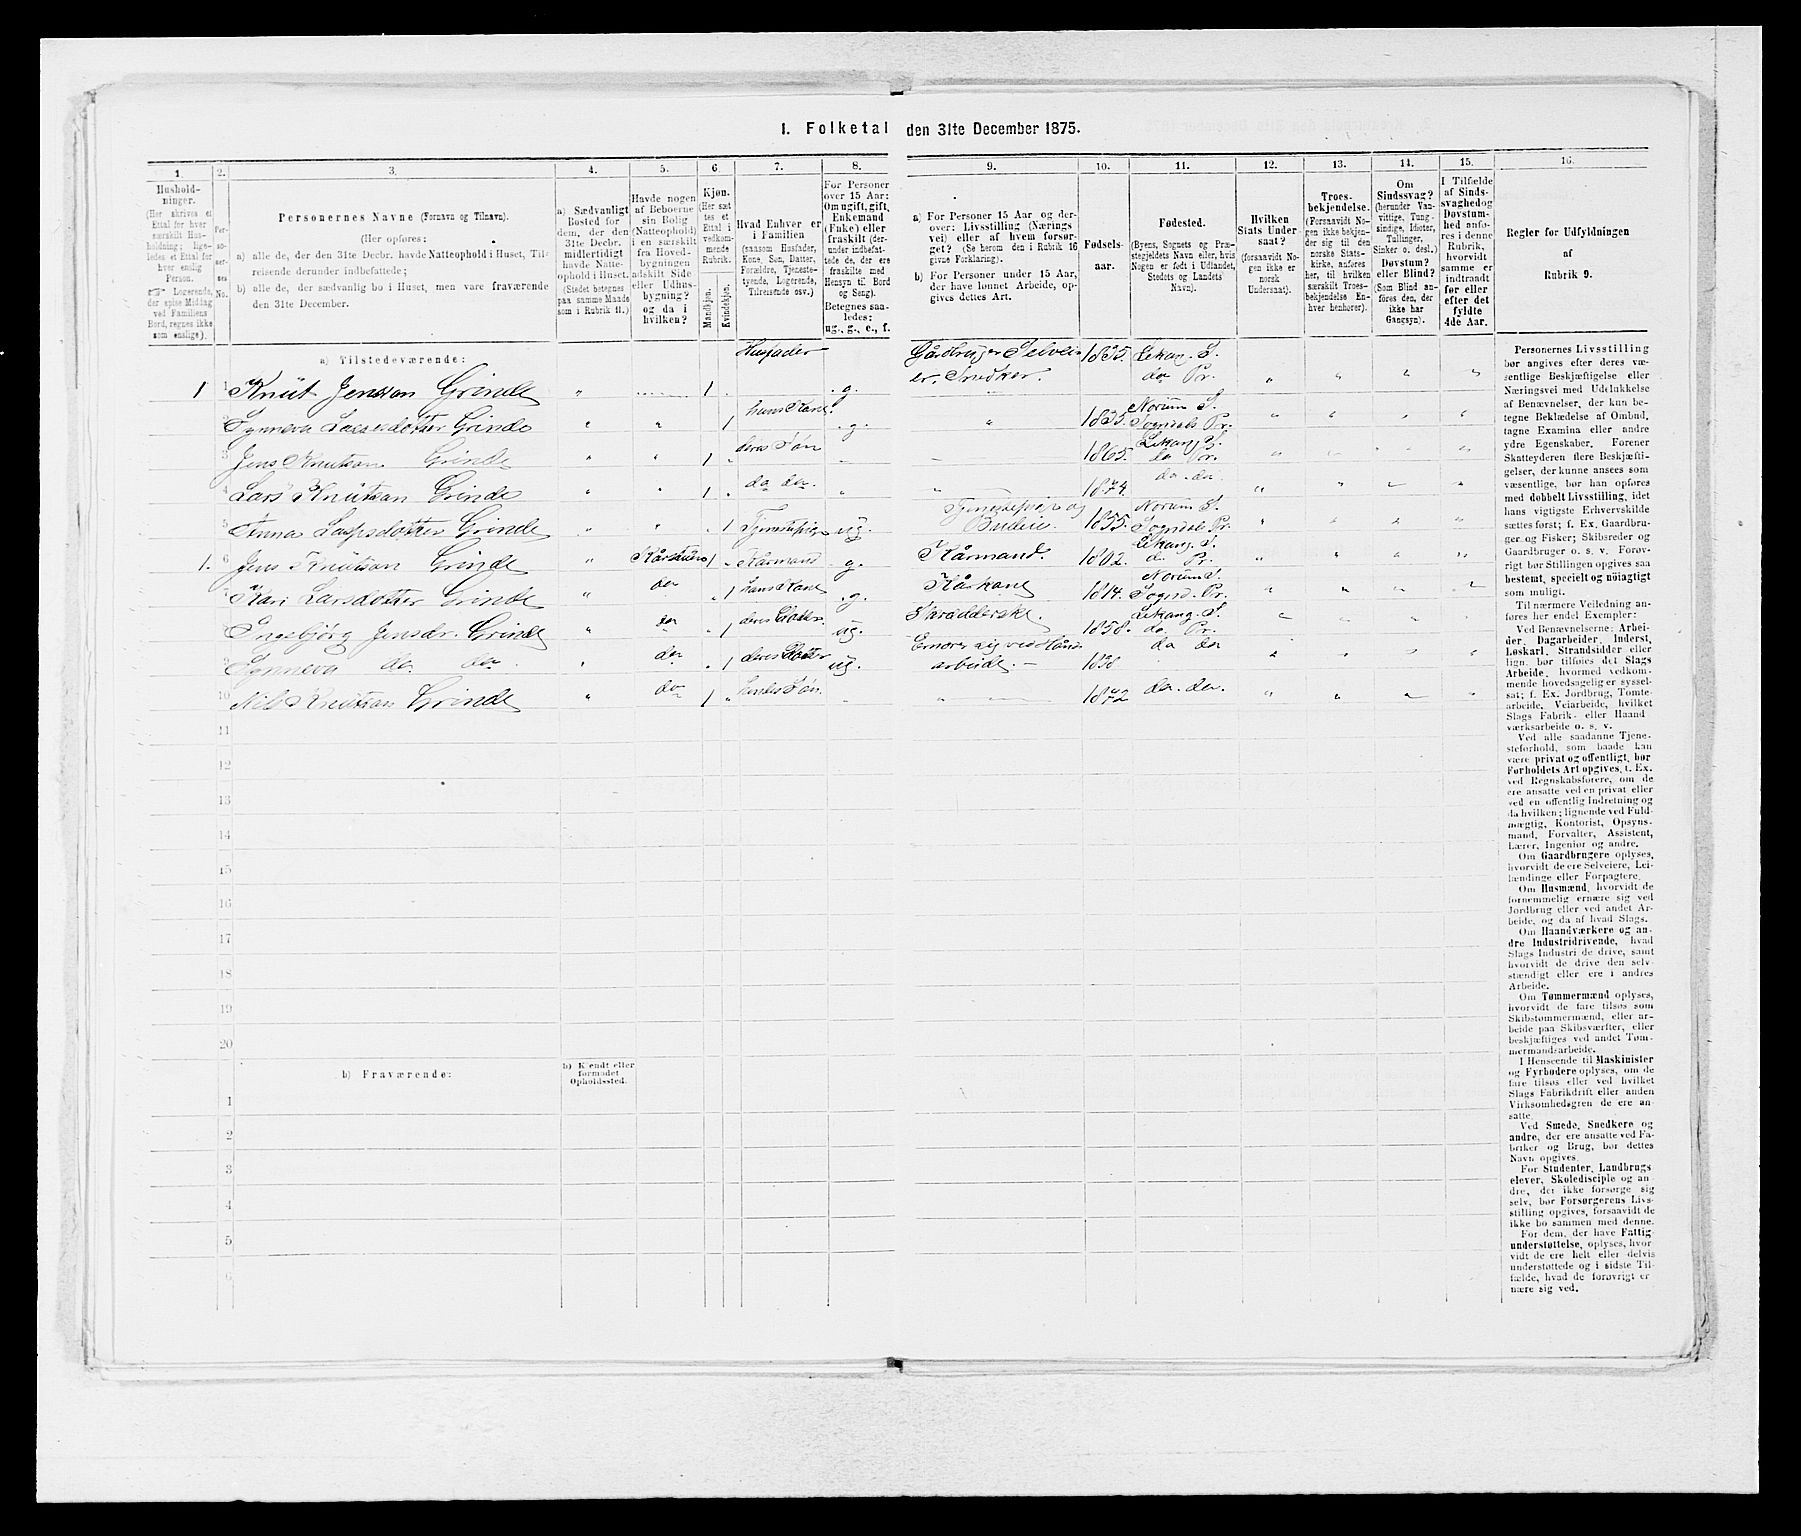 I. Folketal den 31te December 1875.
1. 2. 3. 4. 5. 6. 7. 8. 9. 10. 11. 12. 13. 14. 15. 16.
Hushold-
ninger.
(Her skrives et
Ettal for hver
særskilt Hus-
holdning; lige-
ledes et Ettal for
hver enslig
Person.
Logerende,
der spise Middag
ved Familiens
Bord, regnes ikke
som enslige).
Per-
so-
ner-
nes
No.
Personernes Navne (Fornavn og Tilnavn).
(Her opføres:
a) alle de, der den 31te Decbr. havde Natteophold i Huset, Til-
reisende derunder indbefattede;
b) alle de, der sædvanlig bo i Huset, men vare fraværende
den 31te December.
a) Sædvanligt
Bosted for
dem, der den
31te Decbr.
midlertidigt
havde Natte-
ophold i Huset.
(Stedet betegnes
paa samme Maade
som i Rubrik 11.)
Havde nogen
af Beboerne
sin Bolig
(Natteophold)
i en særskilt
fra Hoved-
bygningen
adskilt Side
eller Udhus-
bygning?
og da i
hvilken?
Kjøn.
(Her sæt-
tes et
Ettal i
vedkom-
mende
Rubrik.
Mandkjøn.
Kvindekjøn.
Hvad Enhver er
i Familien
(saasom Husfader,
Kone, Søn, Datter,
Forældre, Tjeneste-
tyende, Logerende,
Tilreisende osv.)
For Personer
over 15 Aar:
Om ugift, gift,
Enkemand
(Enke) eller
fraskilt (der-
under indbefat-
tede de, der ere
fraskilte med
Hensyn til Bord
og Seng).
Betegnes saa-
ledes:
ug., g., e., f.
a) For Personer 15 Aar og der-
over: Livsstilling (Nærings
vei) eller af hvem forsør-
get? (Se herom den i Rubrik 16
givne Forklaring).
b) For Personer under 15 Aar,
der have lønnet Arbeide, op-
gives dettes Art.
Fødsels-
aar.
Fødested.
(Byens, Sognets og Præ-
stegjeldets Navn eller, hvis
Nogen er født i Udlandet,
Stedets og Landets
Navn).
Hvilken
Stats Under-
saat?
(forsaavidt No-
gen ikke er
norsk
Undersaat).
Troes-
bekjendelse.
(Forsaavidt No-
gen ikke bekjen-
der sig til den
norske Stats-
kirke, anføres
her, til hvilken
særskilt Troes-
bekjendelse En-
hver henhører).
Om
Sindssvag?
(herunder Van-
vittige, Tung-
sindige, Idioter,
Tullinger,
Sinker o. desl.)
Døvstum?
eller Blind?
(Som Blind an-
føres den, der
ikke har
Gangsyn).
I Tilfælde
af Sinds-
svaghed og
Døvstum-
hed anfø-
res i denne
Rubrik,
hvorvidt
samme er
indtraadt
før eller
efter det
fyldte
4de Aar.
Regler for Udfyldningen
af
Rubrik 9.
a) Tilstedeværende:
1 1 Knut Jensson Grinde " 1 Husfader g. Gårdbruger Selvei er, Snedker. 1835. Lekang. S. do Pr. " " " "
2 Synneva Larsdotter Grinde " " 1 hans Kone g. " 1835. Norum S. Sogndals Pr. " " " "
3 Jens Knutson Grinde " " 1 deres Søn 1865. Lekang. S. do Pr.
4 Lars Knutson Grinde " " 1 do do. " " 1874. do do.
5 Anna Larsdotter Grinde " " 1 Tjenestepige ug. Tjenestepige og Budeie. 1855. Norum S. Sogndals Pr.
1. 6 Jens Knutson Grinde " Kårstuen 1 Kårmand g. Kårmand. 1802. Lekang. S. do Pr.
7 Kari Larsdotter Grinde " do 1 hans Kone g. Kårkone 1814. Norum S. Sognd. Pr.
8 Ingebjörg Jensdr. Grinde " do 1 deres Dotter ug. Skrädderske. 1858. Lekang. S. do Pr.
9 Synneva do do " do 1 deres Dotter ug. Ernærer sig ved Hånd arbeide. 1838 do do
10 Nils Knutson Grinde " do 1 hendes Søn 1872 do. do.
11
12
13
14
15
16
17
18
19
20
b) Fraværende: b) Kjendt eller
formodet
Opholdssted.
1
2
3
4
5
6
Personernes Livsstilling
bør angives efter deres væ-
sentlige Beskjæftigelse eller
Næringsvei med Udelukkelse
af Benævnelser, der kun be-
tegne Beklædelse af Ombud,
tagne Examina eller andre
ydre Egenskaber. Forener
Skatteyderen flere Beskjæfti-
gelser, der kunne ansees som
væsentlige, bør han opføres
med dobbelt Livsstilling, idet
hans vigtigste Erhvervskilde
sættes først; f. Ex. Gaardbru-
ger og Fisker; Skibsreder og
Gaardbruger o. s. v. Forøv-
rigt bør Stillingen opgives saa
bestemt, specielt og nøiagtigt
som muligt.
Til nærmere Veiledning an-
føres her endel Exempler:
Ved Benævnelserne: Arbei-
der, Dagarbeider, Inderst,
Løskarl, Strandsidder eller
lign. bør tilføies det Slags
Arbeide, hvormed vedkom-
mende hovedsagelig er syssel-
sat; f. Ex. Jordbrug, Tomte-
arbeide, Veiarbeide, hvilket
Slags Fabrik- eller Haand
værksarbeide o. s. v.
Ved alle saadanne Tjene-
steforhold, som baade kan
være privat og offentligt, bør
Forholdets Art opgives, t. Ex.
ved Regnskabsførere, om de
ere ansatte ved en privat eller
ved en offentlig Indretning og
da hvilken; lignende ved Fuld-
mægtig, Kontorist, Opsyns-
mand, Forvalter, Assistent,
Lærer, Ingeniør og andre.
Om Gaardbrugere oplyses,
hvorvidt de ere Selveiere, Lei-
lændinge eller Forpagtere.
Om Husmænd, hvorvidt de
fornemmelig ernære sig ved
Jordbrug eller ved andet Ar-
beide, og da af hvad Slags.
Om Haandværkere og an-
dre Industridrivende, hvad
Slags Industri de drive, samt
hvorvidt de drive den selv-
stændigt eller ere i andres
Arbeide.
Om Tømmermænd oplyses,
hvorvidt de fare tilsøs som
Skibstømmermænd, eller ar-
beide paa Skibsværfter, eller
beskjæftiges ved andet Tøm-
mermandsarbeide.
I Henseende til Maskinister
og Fyrbødere oplyses, om de
fare tilsøs eller ved hvilket
Slags Fabrikdrift eller anden
Virksomhedsgren de ere an-
satte.
Ved Smede, Snedkere og
andre, der ere ansatte ved Fa-
briker og Brug, bør dettes
Navn opgives.
For Studenter, Landbrugs
elever, Skoledisciple og an-
dre, der ikke forsørge sig
selv, bør Forsørgerens Livs-
stilling opgives, forsaavidt de
ikke bo sammen med denne.
For dem, der have Fattig-
understøttelse, oplyses, hvor
vidt de ere helt eller delvis
understøttede og i sidste Til-
fælde, hvad de forøvrigt er
nære sig ved.